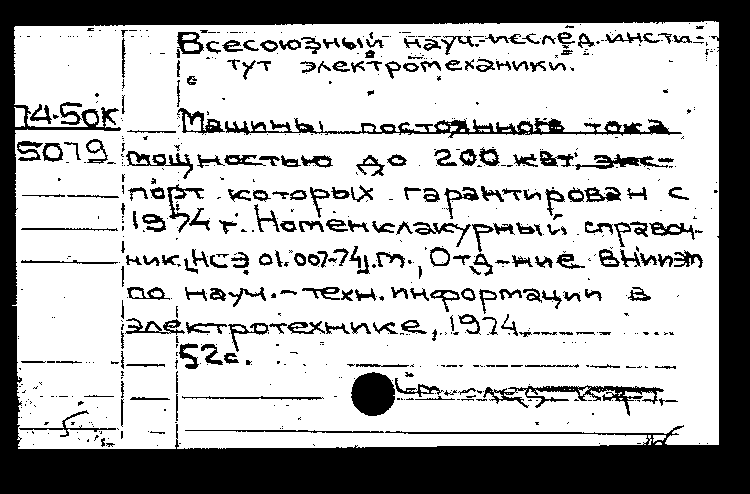 Всесоюзный науч.-исслед. инсти-
тут электромеханики.
74-50к
Машины постоянного тока
5079
мощностью до 200 квт, экс-
порт которых гарантирован с
1974 г. Номенклакурный справоч-
ник [НСЭ 01.007-74]. М., Отд-ние ВНИИЭМ
по науч.-техн. информации в
электротехнике, 1974
52с.
См. след. карт.